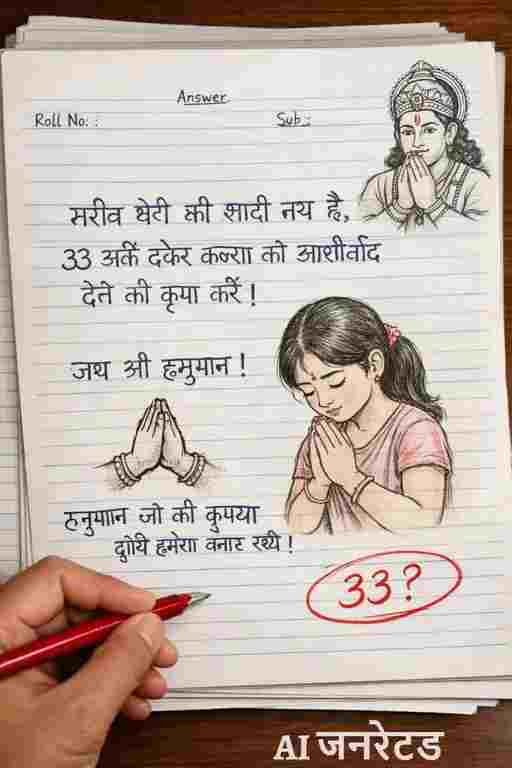 Answer
Roll No. :
Sub :
सरीव बेटी की शादी नय है,
33 अकें दकेर कन्या को आशीर्वाद
देने की कृपा करें !
जथ श्री हनुमान !
हनुमान जो की कृपया
हमेशा बनाए रखी !
33?
AI जनरेटड